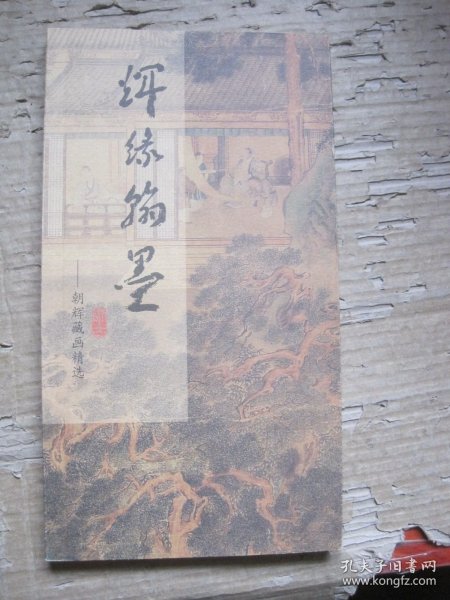 辉缘翰墨
——朝辉藏画精选
孔夫子旧书网
www.kongfz.com